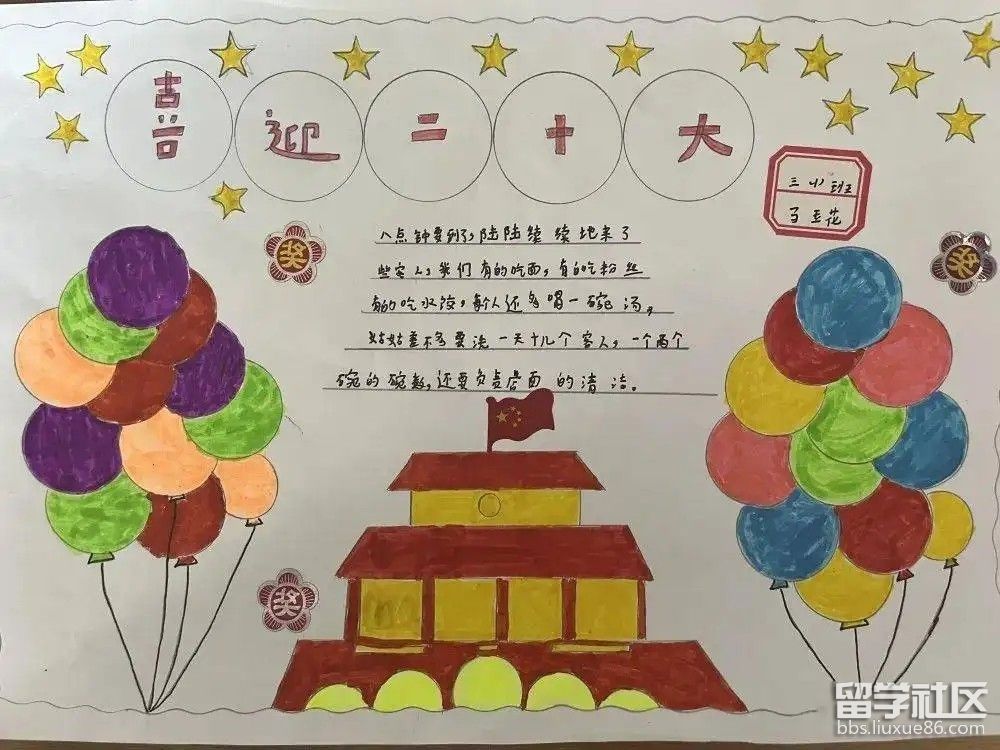 喜迎二十大
三小班
八点钟要到了,陆陆续续地来了
些客人,我们有的吃面,有的吃粉丝
有的吃水饺,每人还多喝一碗汤,
姑姑差不多要洗一天十几个客人,一个两个
碗的碗数,还要负责店面的清洁。
奖
奖
奖
留学社区
bbs.liuxue86.com